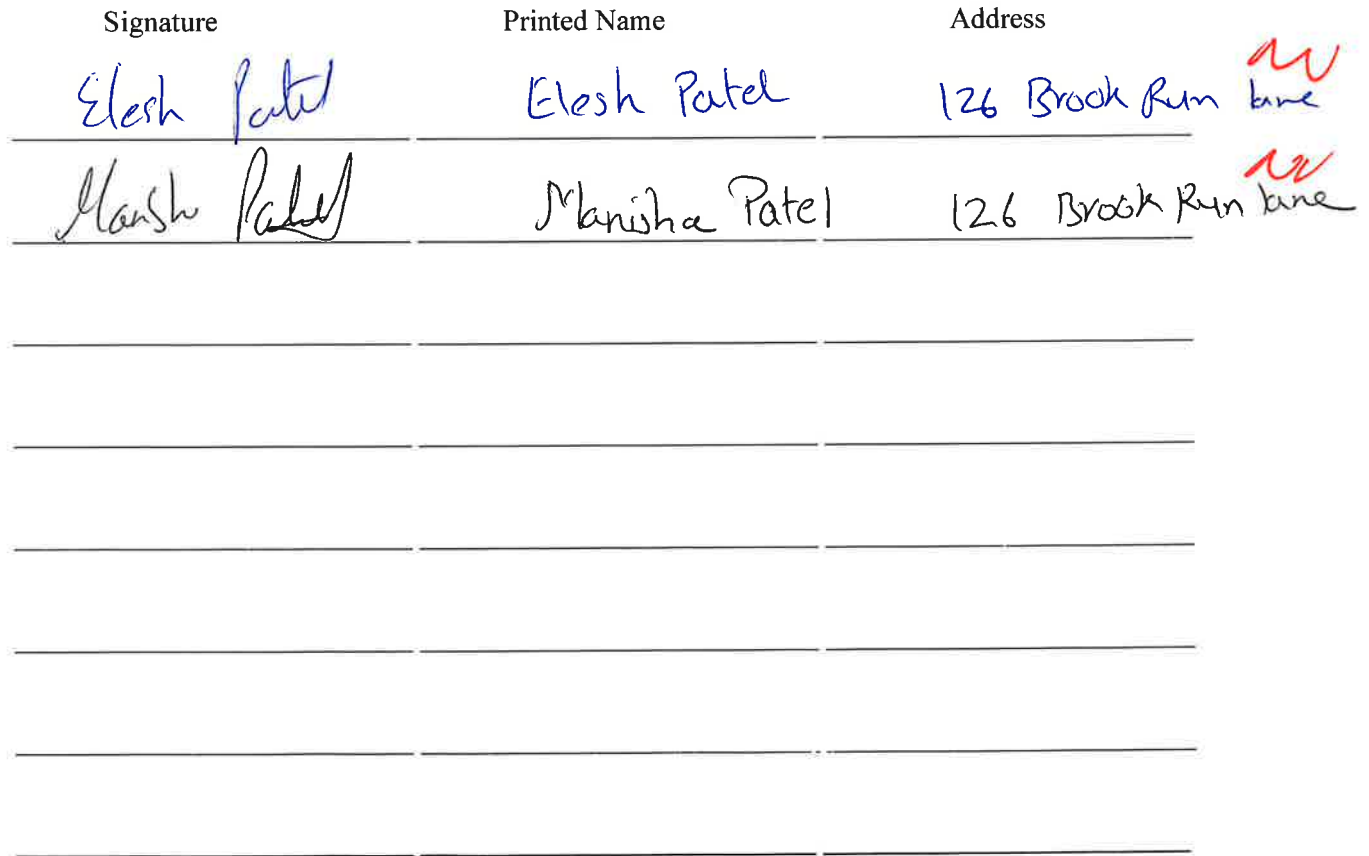 Signature Printed Name Address
Elesh Patel Elesh Patel 126 Brook Run lane
Manisha Patel 126 Brook Run lane